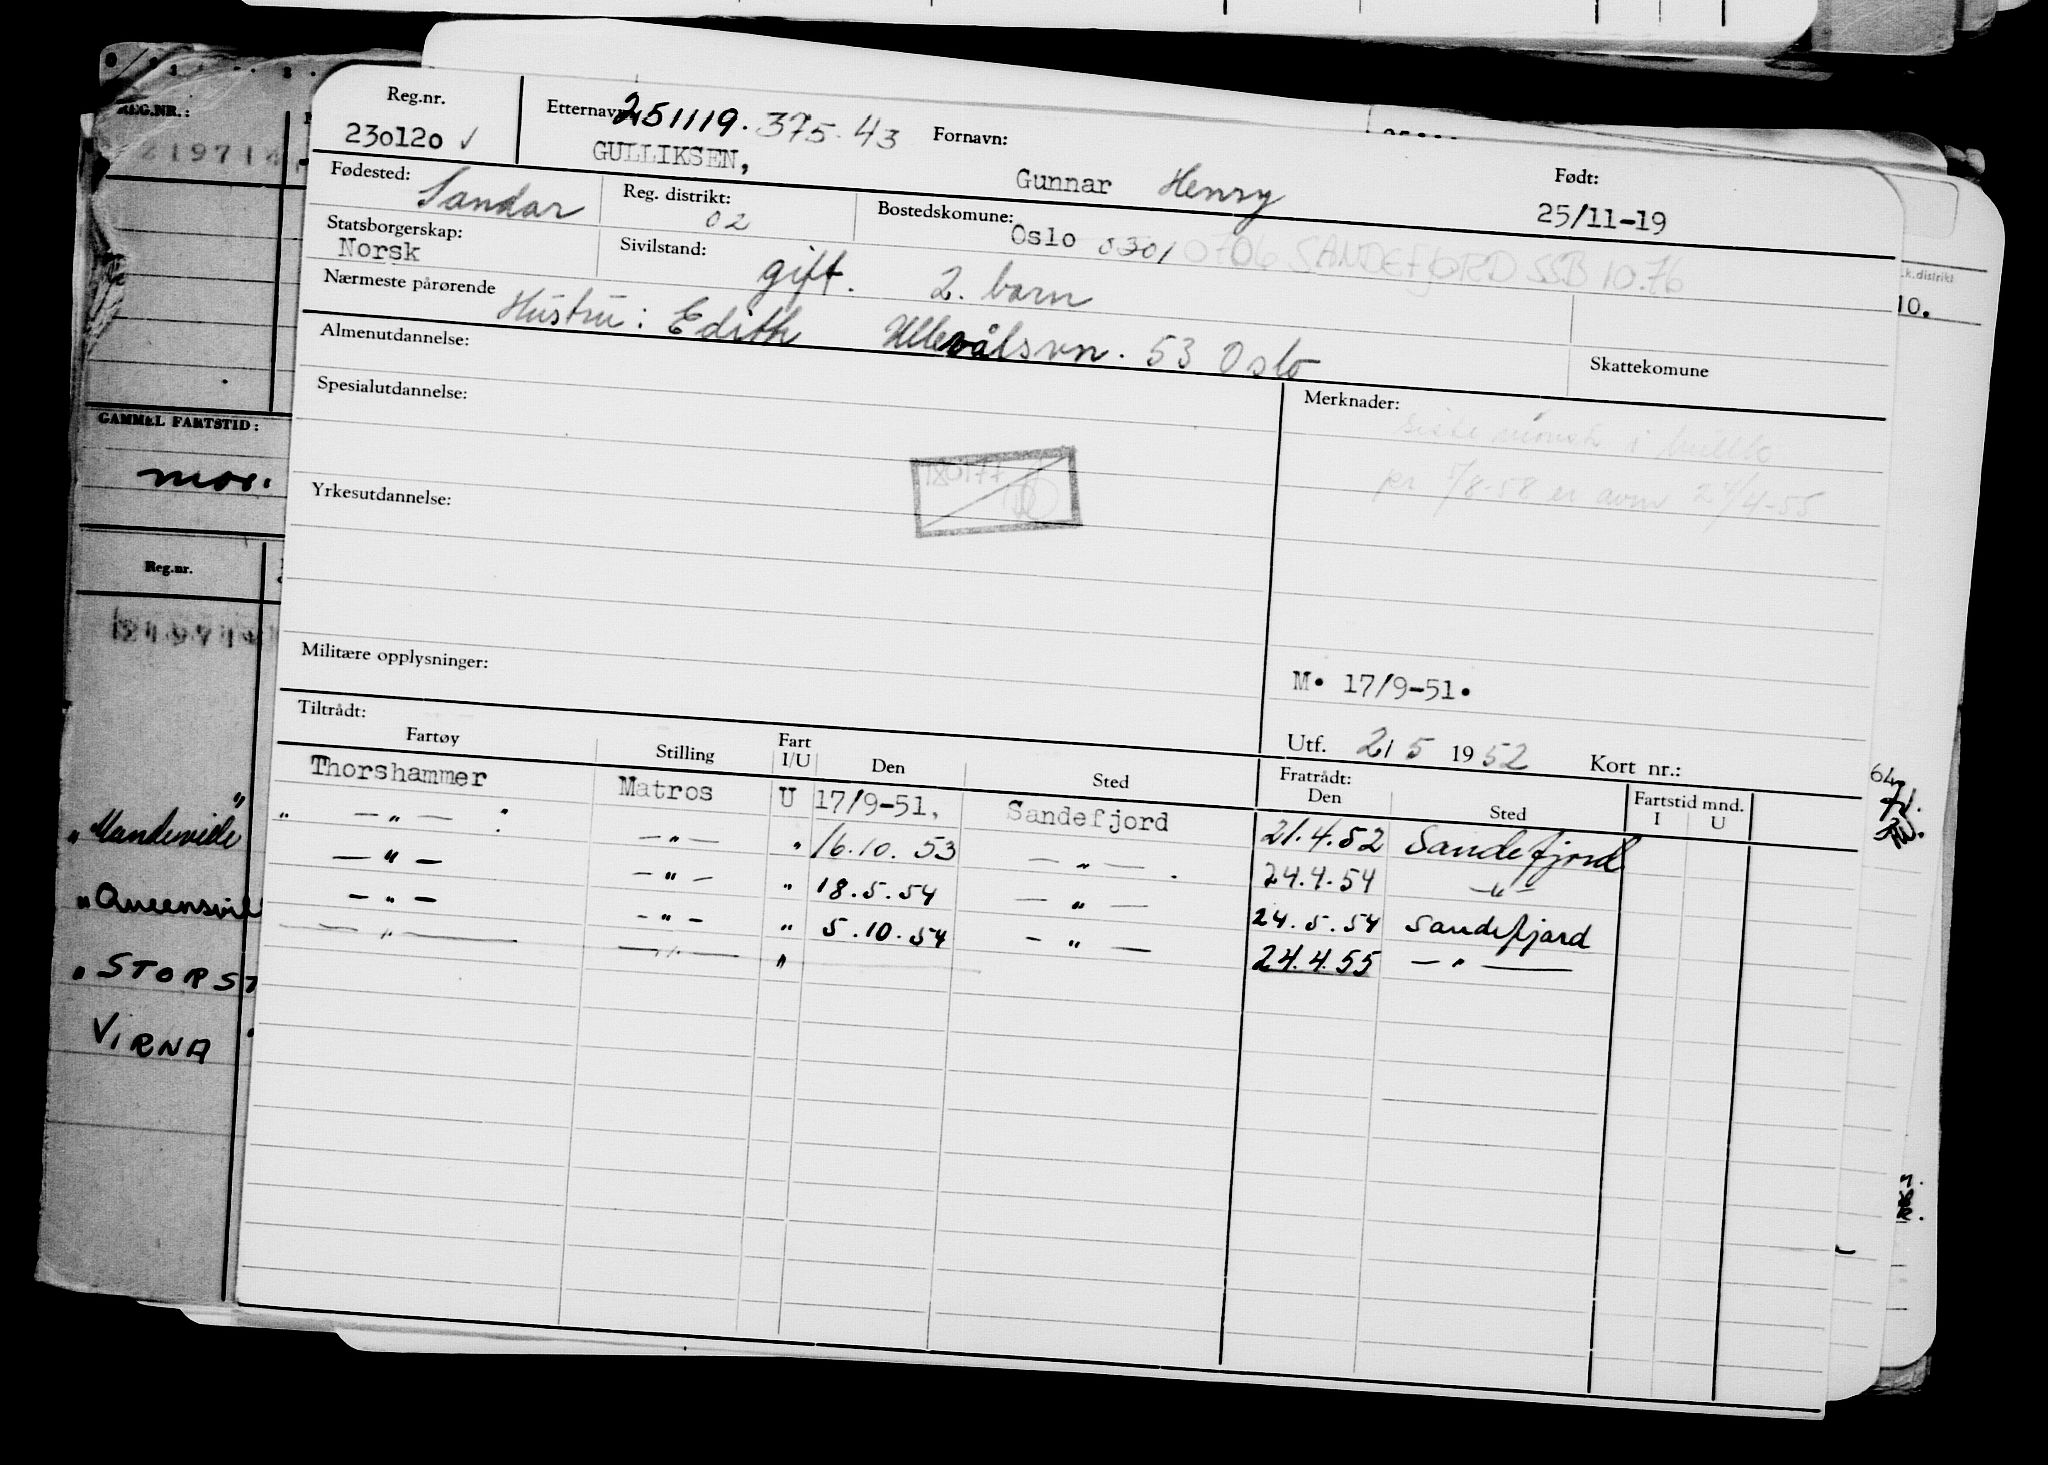 Reg.nr. Etternavn 251119. 375-43 Fornavn: Født:
230120 ✓ GULLIKSEN, Gunnar Henry 25/11-19
Fødested: Sandar Reg. distrikt: 02 Bostedskomune: Oslo 0301 0706 SANDEFJORD SSB 10.76
Statsborgerskap: Norsk Sivilstand: gift. 2. barn
Nærmeste pårørende Hustru: Edith Ullevålsvn. 53 Oslo
Skattekomune
Almenutdannelse:
Spesialutdannelse: Merknader:
siste mønstr i hullb
pr 1/8-58 er avm 24/4-55
180177
Yrkesutdannelse:
Militære opplysninger:
M. 17/9-51.
Utf. 21 5 1952 Kort nr.:
Tiltrådt: Fratrådt:
Fartøy Stilling Fart I/U Den Sted Den Sted Fartstid mnd. I U
Thorshammer Matros U 17/9-51. Sandefjord 21.4.52 Sandefjord
" —"— —"— " 16.10.53 —"— 24.4.54 —"—
—"— —"— " 18.5.54 —"— 24.5.54 Sandefjord
—"— —"— " 5.10.54 —"— 24.4.55 —"—
—"— —"— "
REG.NR.:
219714
GAMMEL FARTSTID:
mos.
Reg.nr.
219714
"
"Mandeville
"Queensvil
"STORST
VIRNA
k.distrikt
10.
64